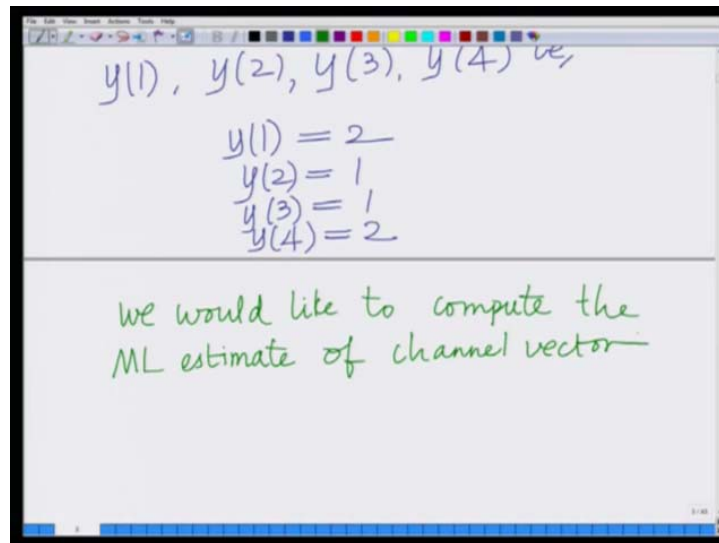 File Edit View Insert Actions Tools Help
y(1), y(2), y(3), y(4) ie,
y(1) = 2
y(2) = 1
y(3) = 1
y(4) = 2
we would like to compute the
ML estimate of channel vector